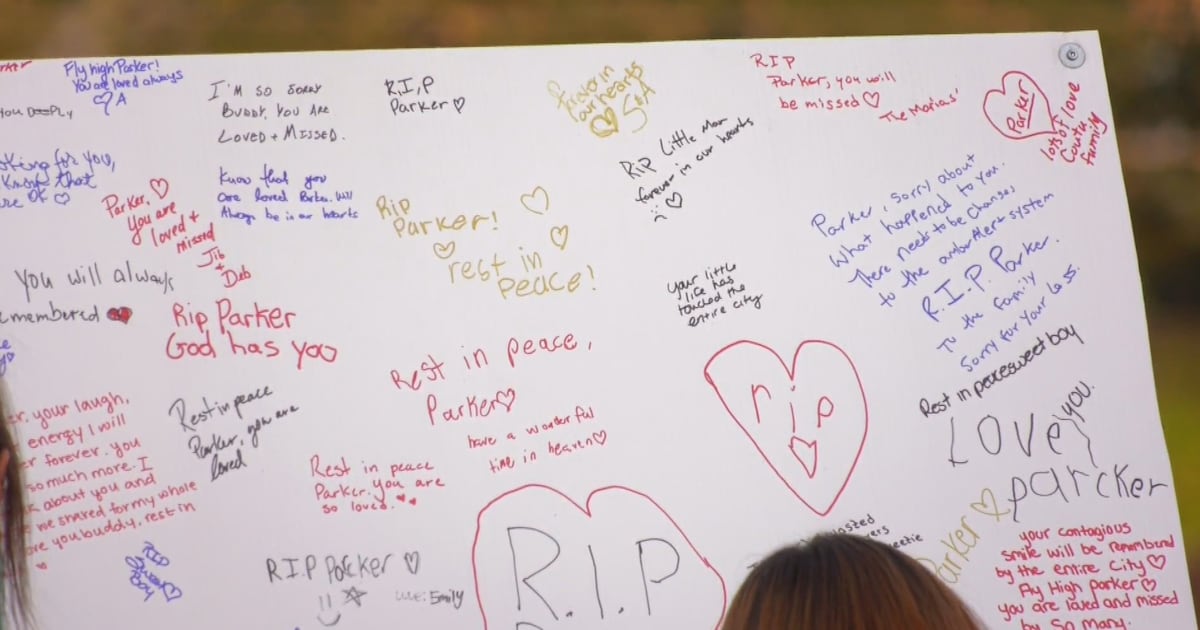 Fly high Parker!
You are loved always
A
You Deeply
for you,
know that
OK
Parker,
You are
loved +
missed
Jib
+
Deb
You will always
Rip Parker
God has you
your laugh,
energy I will
forever. you
so much more. I
about you and
we shared for my whole
you buddy, rest in
I'M SO SORRY
BUDDY. YOU ARE
LOVED + MISSED.
Know that you
are loved Parker. Will
Always be in our hearts
R.I,P
Parker
Rip
Parker!
rest in
peace!
Rest in peace
Parker, you are
loved
Rest in peace,
Parker
have a wonderful
time in heaven
Rest in peace
Parker. you are
so loved.
R.I.P Parker
Emily
R.I.P
Forever in
our hearts
S&A
Rip Little Man
forever in our hearts
your little
life has
touched the
entire city
rip
RIP
Parker, you will
be missed
The Morias'
Parker
lots of love
Coutu
family
Parker, sorry about
What happened to you.
There needs to be changes
to the amber Alert system
R.I.P. Parker.
To the family
Sorry for your loss.
Rest in peace sweet boy
Love you
parcker
Parker
your contagious
smile will be rememberd
by the entire City
Fly High Parker
you are loved and missed
by So Many.